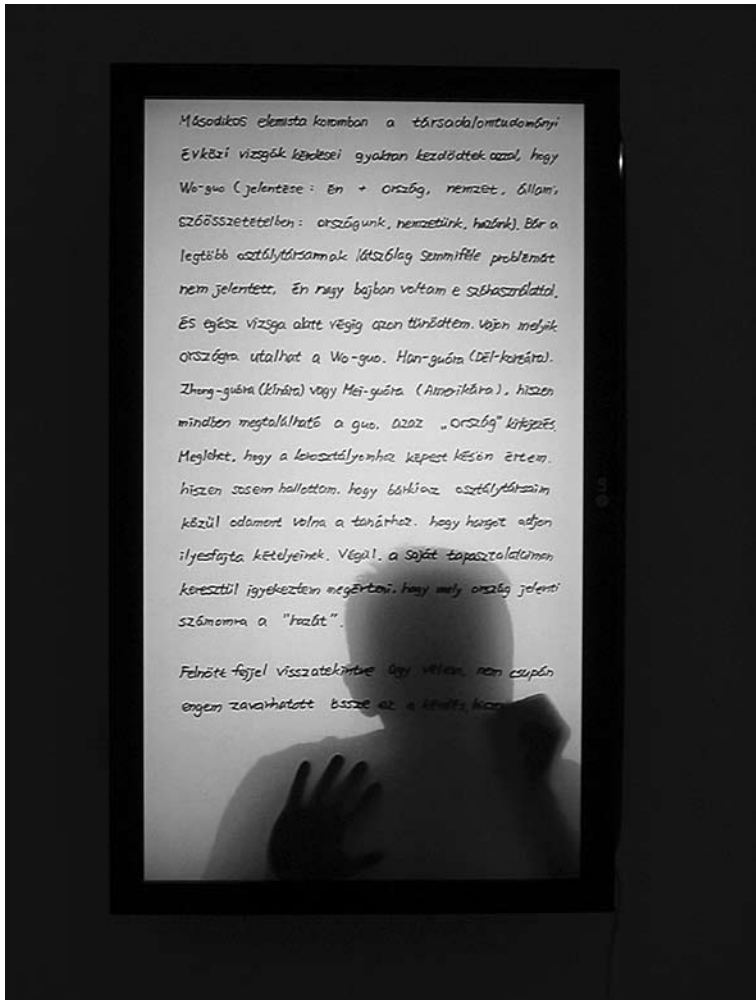 Másodikos elemista koromban a társadalomtudományi
évközi vizsgák kérdései gyakran kezdődtek azzal, hogy
Wo-guo (jelentése: én + ország, nemzet, állam,
szóösszetételben: országunk, nemzetünk, hazánk). Bár a
legtöbb osztálytársamnak látszólag semmiféle problémát
nem jelentett, én nagy bajban voltam e szóhasználattal,
és egész vizsga alatt végig azon tűnődtem, vajon melyik
országra utalhat a Wo-guo. Han-guóra (Dél-koreára).
Zhong-guóra (Kínára) vagy Mei-guóra (Amerikára), hiszen
mindben megtalálható a guo, azaz „ország" kifejezés.
Meglehet, hogy a korosztályomhoz képest későn értem,
hiszen sosem hallottam, hogy bárki az osztálytársaim
közül odament volna a tanárhoz, hogy hangot adjon
ilyesfajta kételyeinek. Végül, a saját tapasztalataimon
keresztül igyekeztem megérteni, hogy mely ország jelenti
számomra a "hazát".
Felnőtt fejjel visszatekintve úgy vélem, nem csupán
engem zavarhatott össze ez a kérdés,
LG